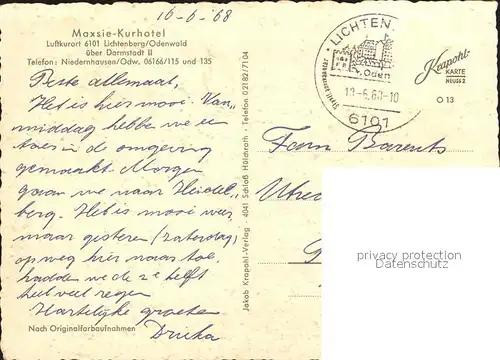 16-6-'68
Maxsie-Kurhotel
Luftkurort 6101 Lichtenberg/Odenwald
über Darmstadt II
Telefon: Niedernhausen/Odw. 06166/115 und 135
Beste allemaal,
Het is hier mooi. Van
middag hebben we een
toer in de omgeving
gemaakt. Morgen
gaan we naar Heidel-
berg. Het is mooi weer
maar gisteren (zaterdag)
op weg hier naar toe
hadden we de 2e helft
heel veel regen
Hartelijke groeten
Nach Originalfarbaufnahmen
Jakob Krapohl-Verlag · 4041 Schloß Hülchrath · Telefon 02182/7104
LICHTEN
Oden
-6.68-10
6101
Krapohl-
KARTE
NEUSS 2
O 13
Fam Barents
privacy protection
Datenschutz